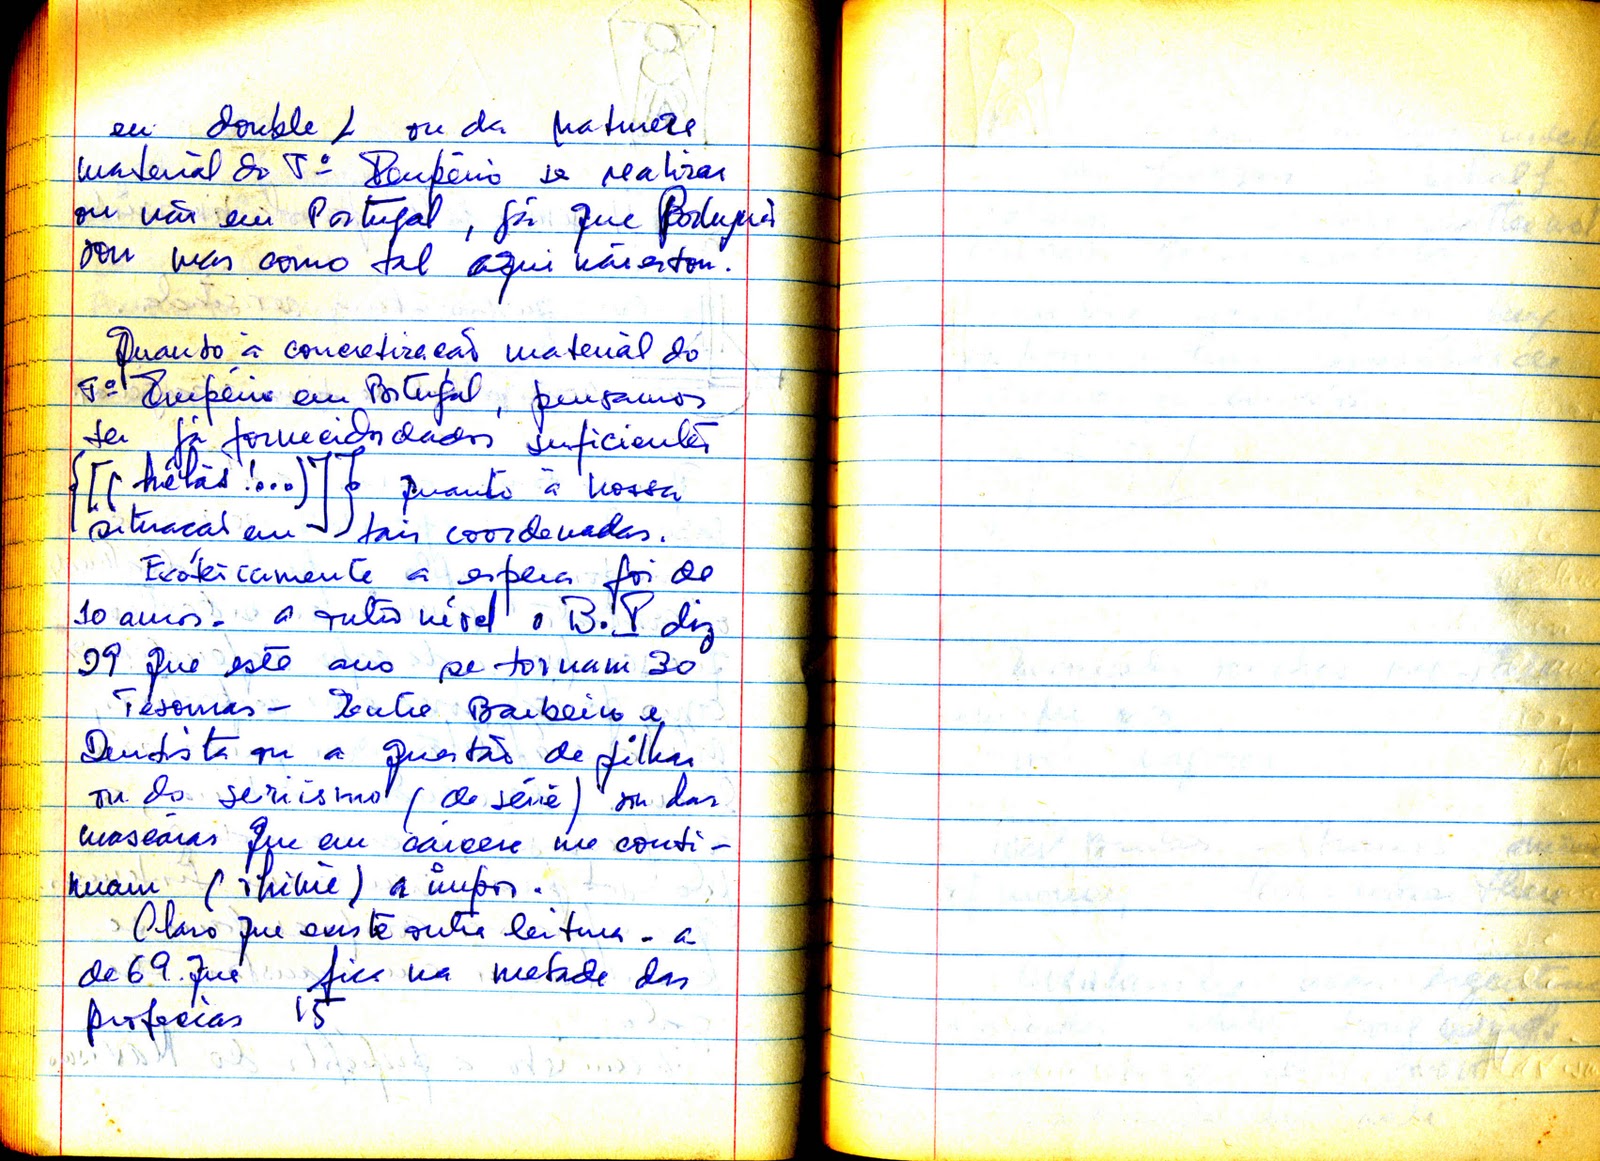 ou da natureza
material do Tº Império se realizar
ou não em Portugal, já que Português
sou mas como tal aqui não estou.
Quanto à concretização material do
Tº Império em Portugal, pensamos
ser já fornecidos dados suficientes
{[( hélas!...)]} quanto à nossa
situação em tais coordenadas.
Exótericamente a espera foi de
10 anos - a outro nível o B.P diz
que este ano se tornam 30
Tesouras - Entre Barbeiro e
Dentista ou a questão de pilhas
ou do seriismo (de série) ou das
máscaras que em cárcere me conti-
nuam a impor.
Claro que existe outra leitura - a
de 69 que fica na metade das
profecias 15